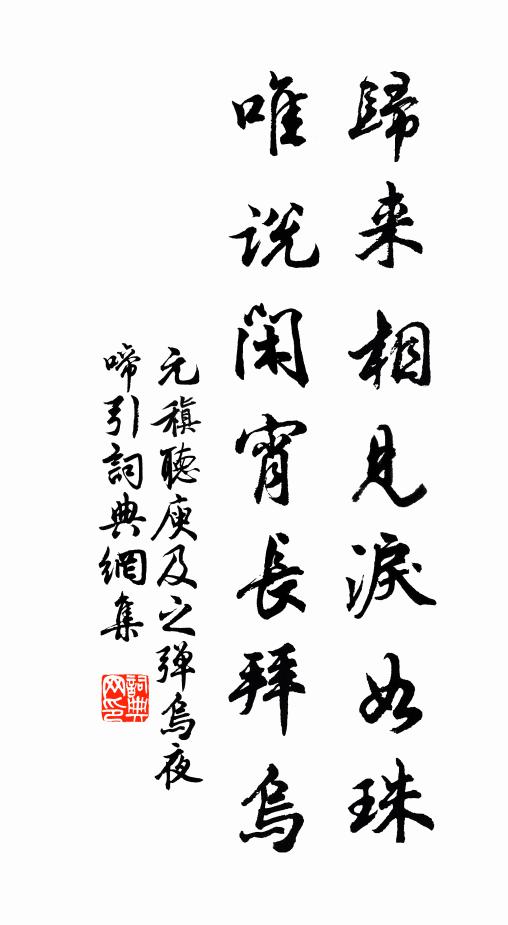 歸来相見淚如珠
唯説閑宵長拜烏
元稹聽庾及之彈烏夜
啼引詞典網集
詞典
网印